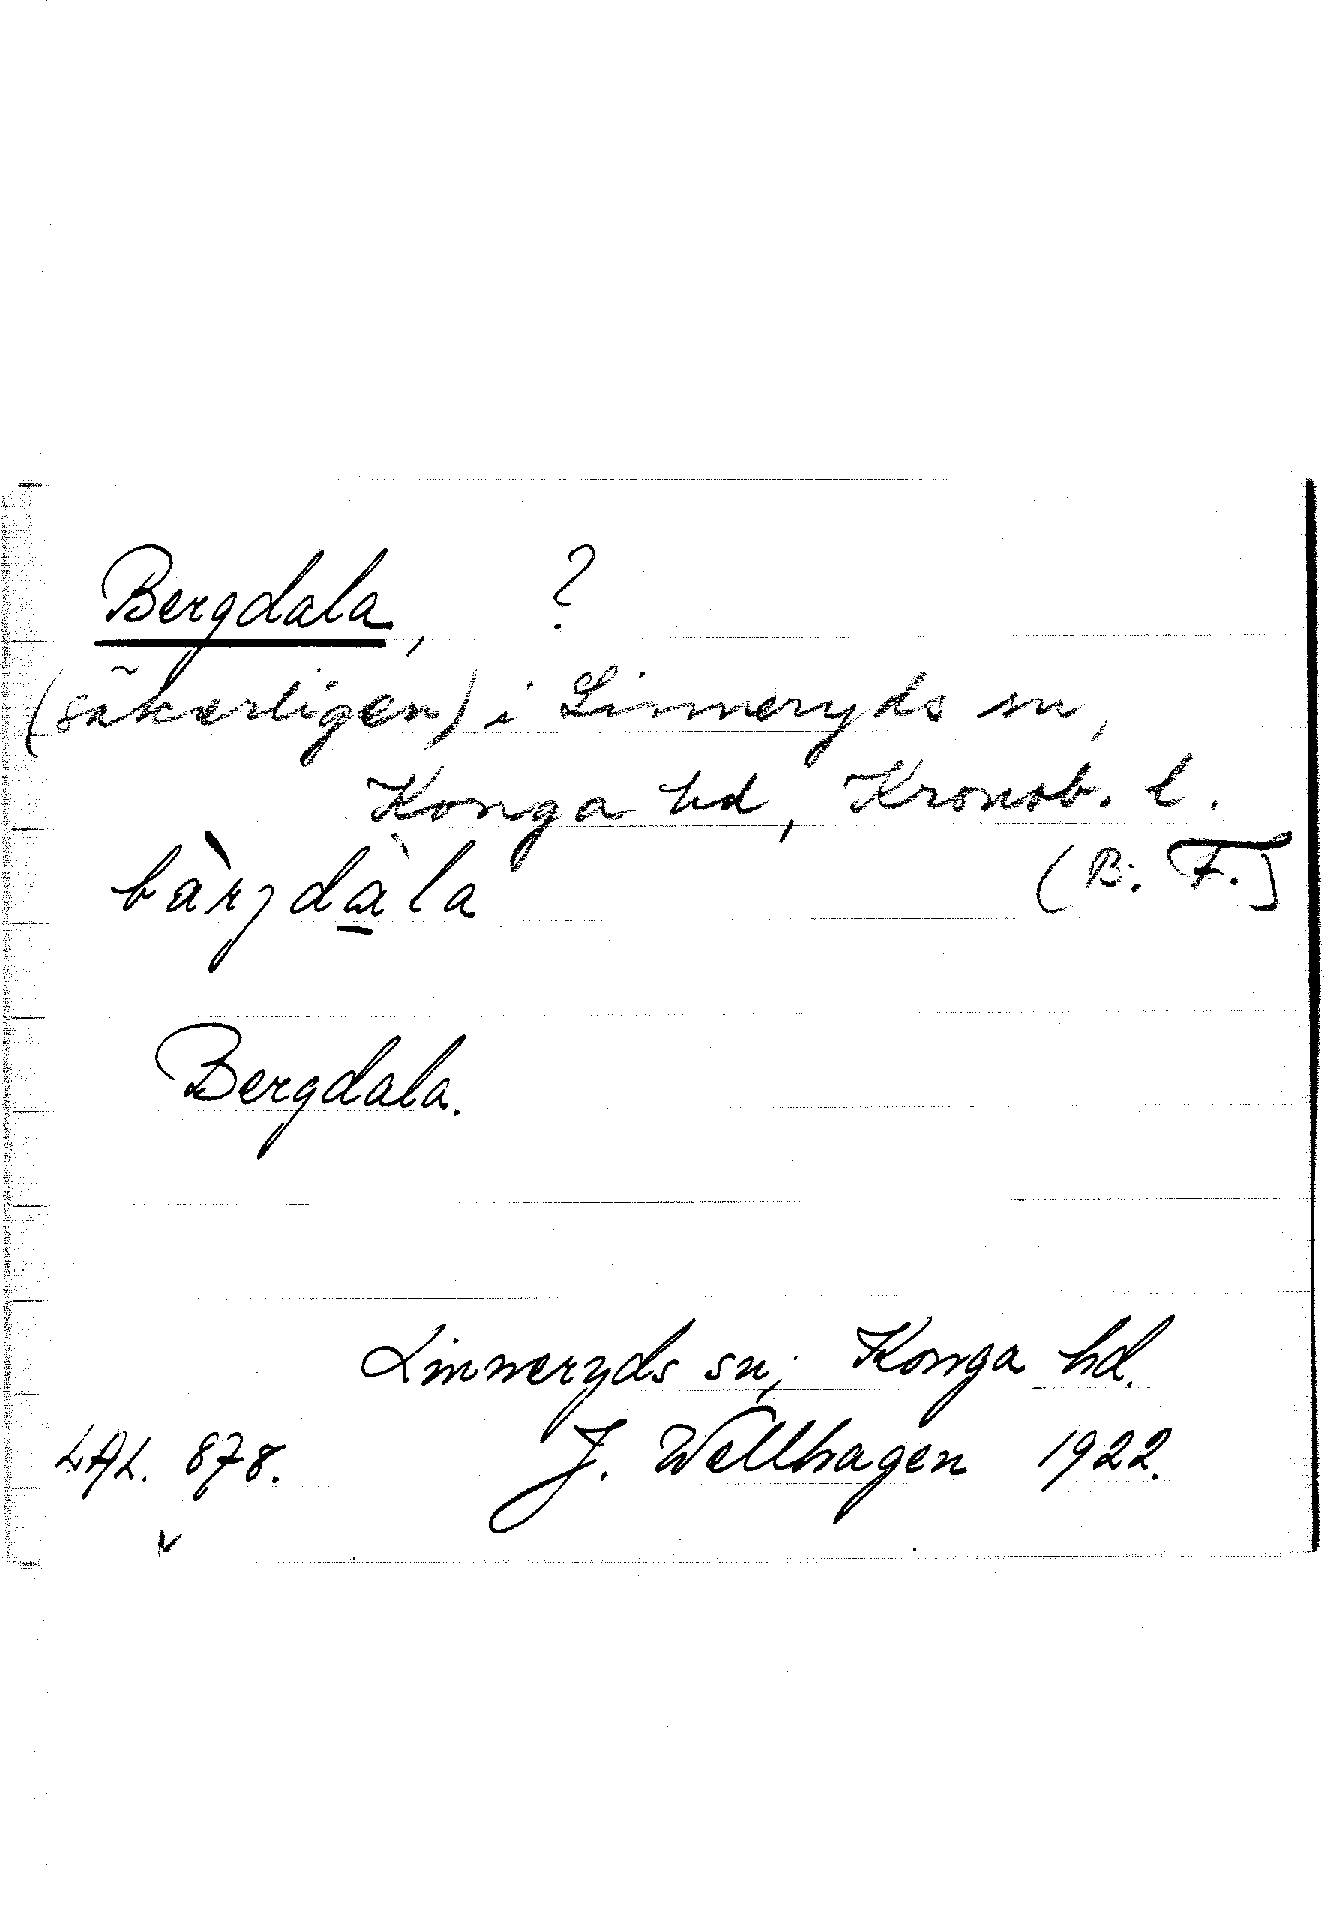 Bergdala, ?
(säkerligen) i Linneryds sn,
Konga hd, Kronob. l.
(B. F.)
bàrjdàla
Bergdala.
Linneryds sn, Konga hd.
LAL. 878. J. Wellhagen 1922.